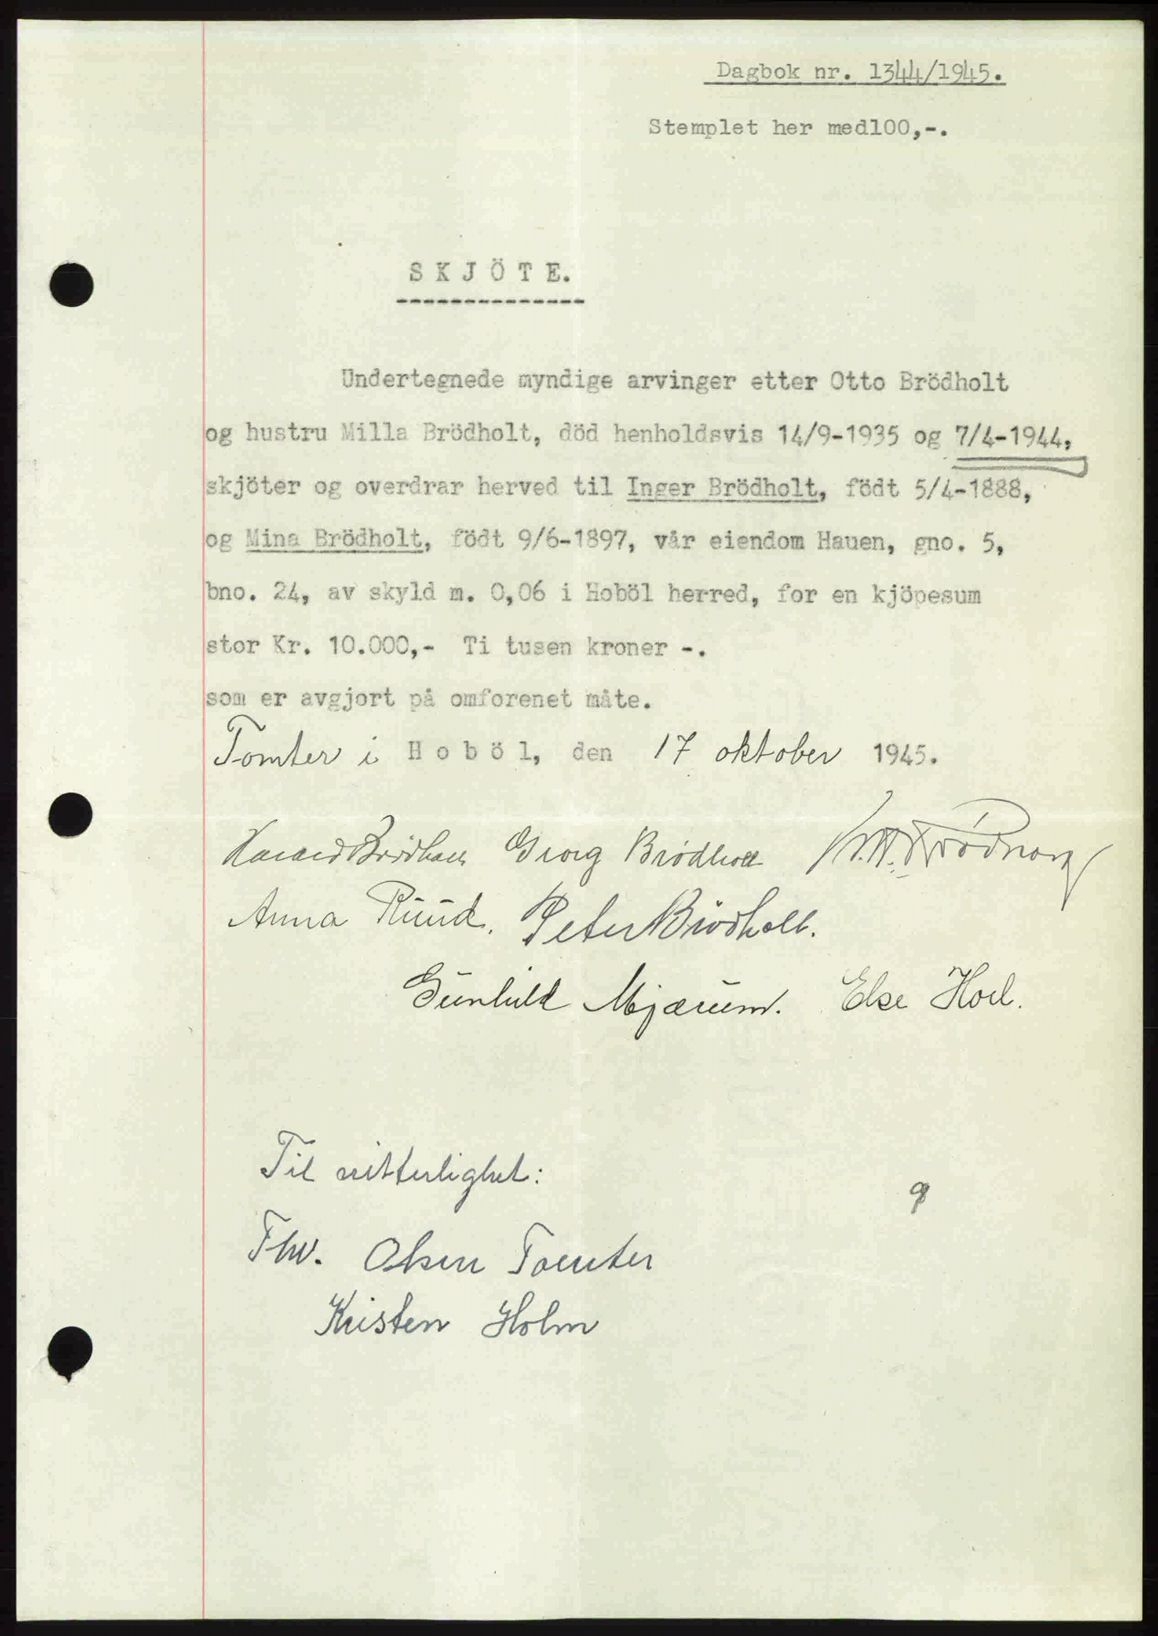 Dagbok nr. 1344/1945.
Stemplet her med100,-.
SKJÖTE.
Undertegnede myndige arvinger etter Otto Brödholt
og hustru Milla Brödholt, död henholdsvis 14/9-1935 og 7/4-1944,
skjöter og overdrar herved til Inger Brödholt, födt 5/4-1888,
og Mina Brödholt, födt 9/6-1897, vår eiendom Hauen, gno. 5,
bno. 24, av skyld m. 0,06 i Hoböl herred, for en kjöpesum
stor Kr. 10.000,- Ti tusen kroner -.
som er avgjort på omforenet måte.
Tomter i Hoböl, den 17 oktober 1945.
Brödholt Georg Brödholt
Anna Ruud. Peter Brödholt.
Gunhild Mjærum. Else Hoel.
Til vitterlighet:
Thv. Olsen Tomter
Kristen Holm